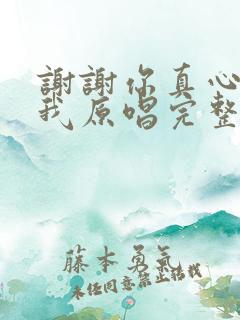 謝謝你真心
我原唱完整
藤本勇気
未经同意禁止搭我